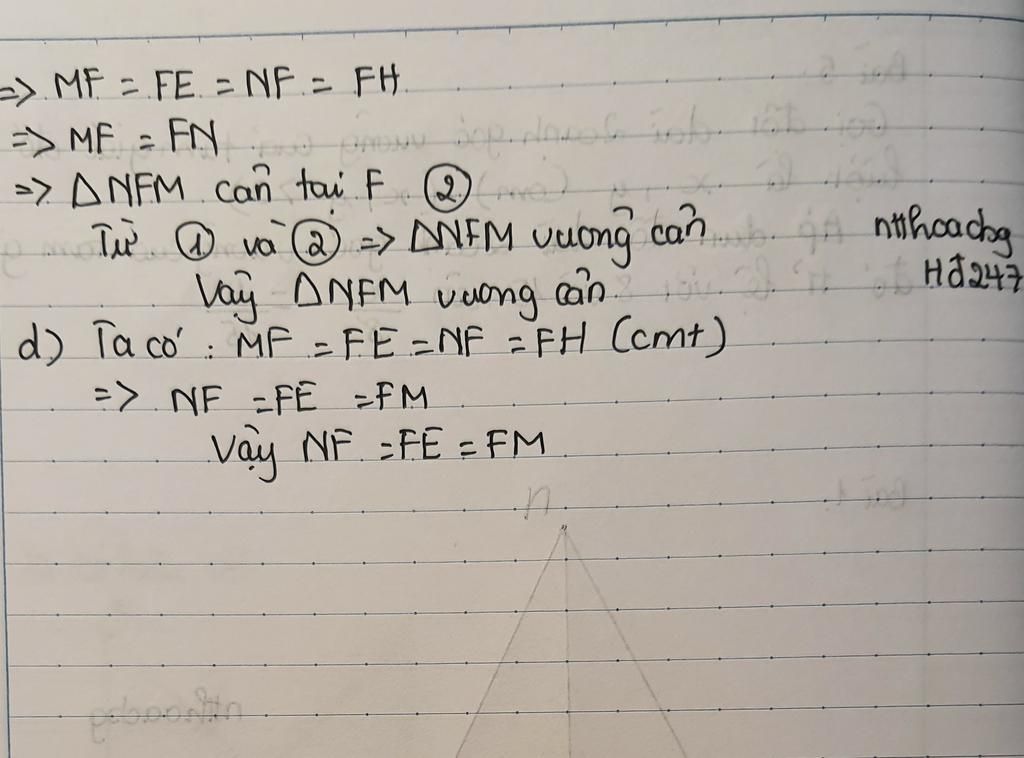 => MF = FE = NF = FH
=> MF = FN
=> ΔNFM cân tại F ②
Từ ① và ② => ΔNFM vuông cân
Vậy ΔNFM vuông cân
ntthoadbg
Hđ247
d) Ta có : MF = FE = NF = FH (cmt)
=> NF = FE = FM
Vậy NF = FE = FM
n